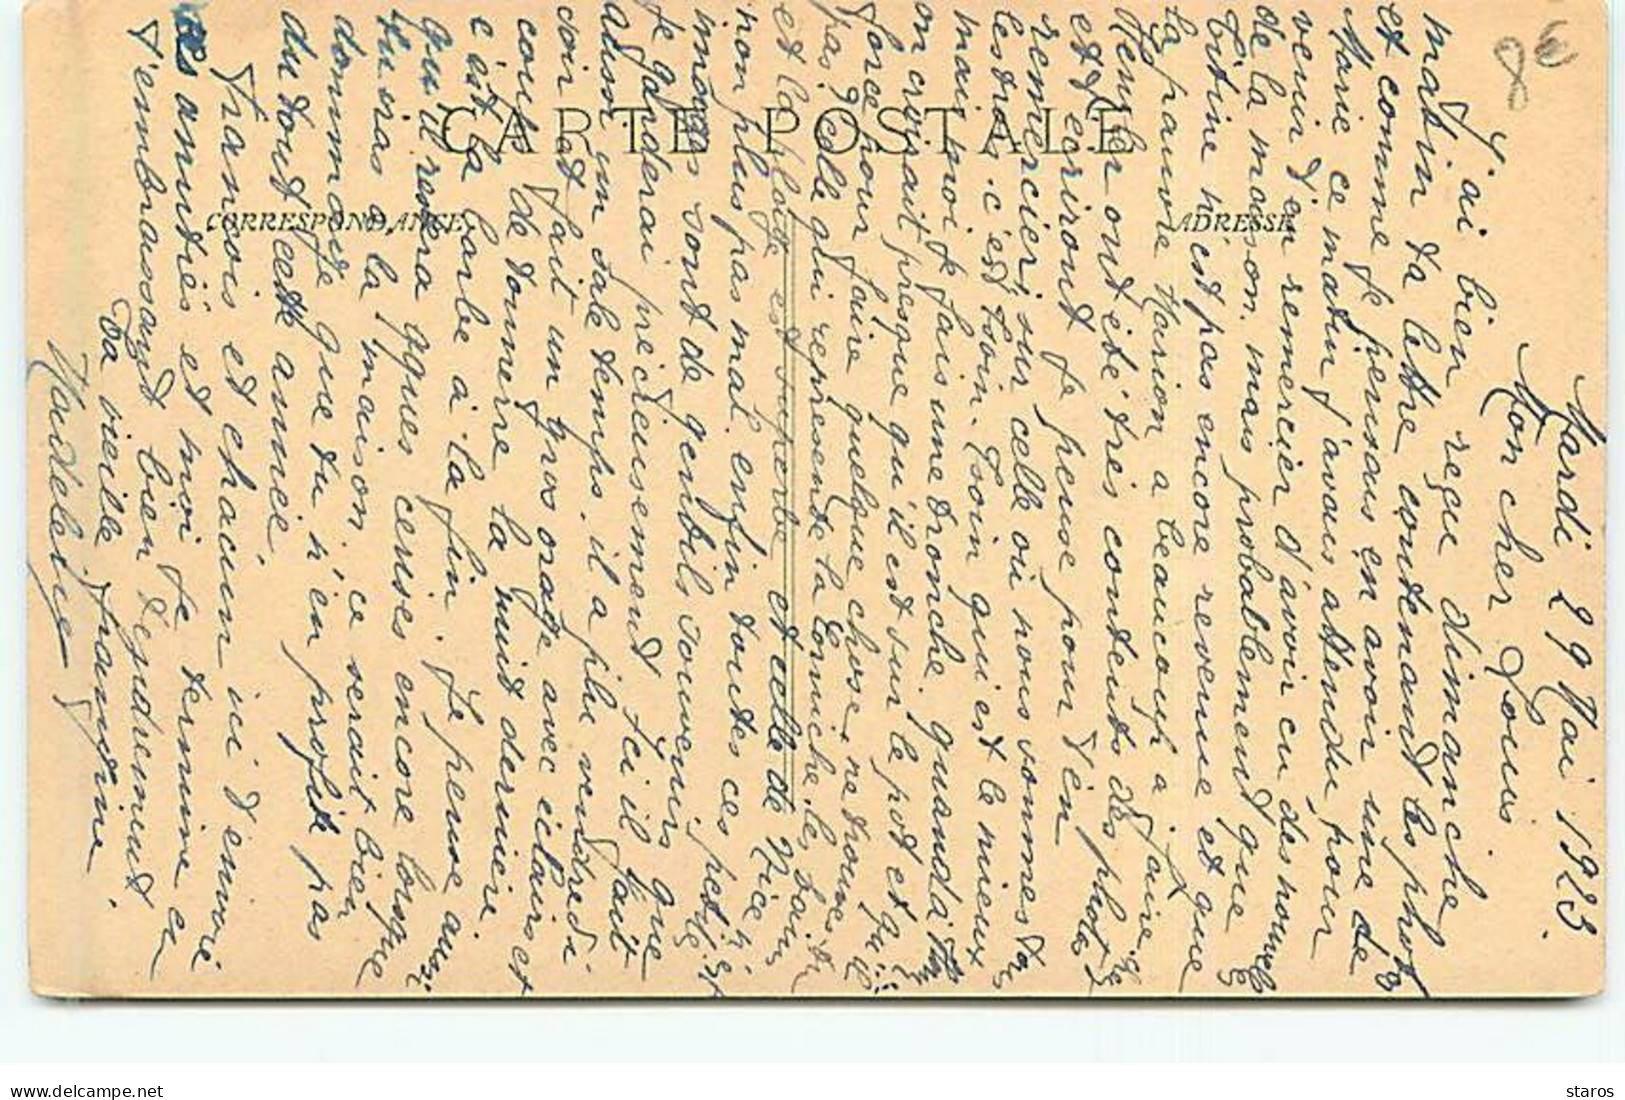 Mardi 29 Mai 1923.
Mon cher Louis
J'ai bien reçu dimanche
matin ta lettre contenant les photos
et comme je pensais en avoir une de
Marie ce matin j'avais attendu pour
venir t'en remercier d'avoir eu des nouvelles
de la maison. mais probablement que
Titine n'est pas encore revenue et que
la pauvre Marion a beaucoup à faire.
ont été très contents des photos
et t'écriront je pense pour t'en
remercier, sur celle où nous sommes
les trois. c'est Loin. Loin qui est le mieux
mais moi je fais une tronche. quand à
on croirait presque qu'il est sur le pot et qu'il
force pour faire quelque chose. ne trouves tu
pas? celle qui représente la Corniche. les
et la plage est superbe et celle de Nice
non plus pas mal. enfin toutes ces petites
images sont de gentils souvenirs que
je garderai précieusement. Ici il fait
aussi un sale temps. il a plu vendredi
soir et fait un gros orage avec éclairs et
coups de tonnerre la nuit dernière.
c'est la barbe à la fin. Je pense aussi
qu'il restera qques cerises encore lorsque
tu iras à la maison, ce serait bien
dommage que tu n'en profite pas
du tout cette année.
François et chacun ici t'envoie
ses amitiés et moi je termine en
t'embrassant bien tendrement
Ta vieille frangine.
Madeleine
CARTE POSTALE
CORRESPONDANCE
ADRESSE
8€
staros